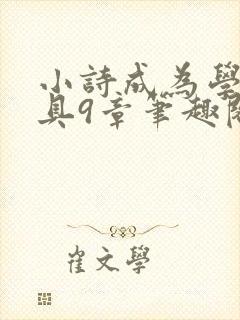 小詩成為學
具9章筆趣閣
崔文學